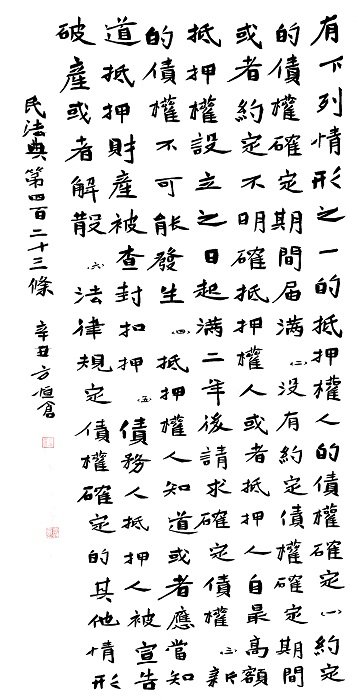 有下列情形之一的抵押權人的債權確定(一)約定
的債權確定期間届滿(二)没有約定債權確定期間
或者約定不明確抵押權人或者抵押人自最高額
抵押權設立之日起滿二年後請求確定債權(三)新
的債權不可能發生(四)抵押權人知道或者應當知
道抵押財産被查封扣押(五)債務人抵押人被宣告
破産或者解散(六)法律規定債權確定的其他情形
民法典第四百二十三條 辛丑 方恒倉